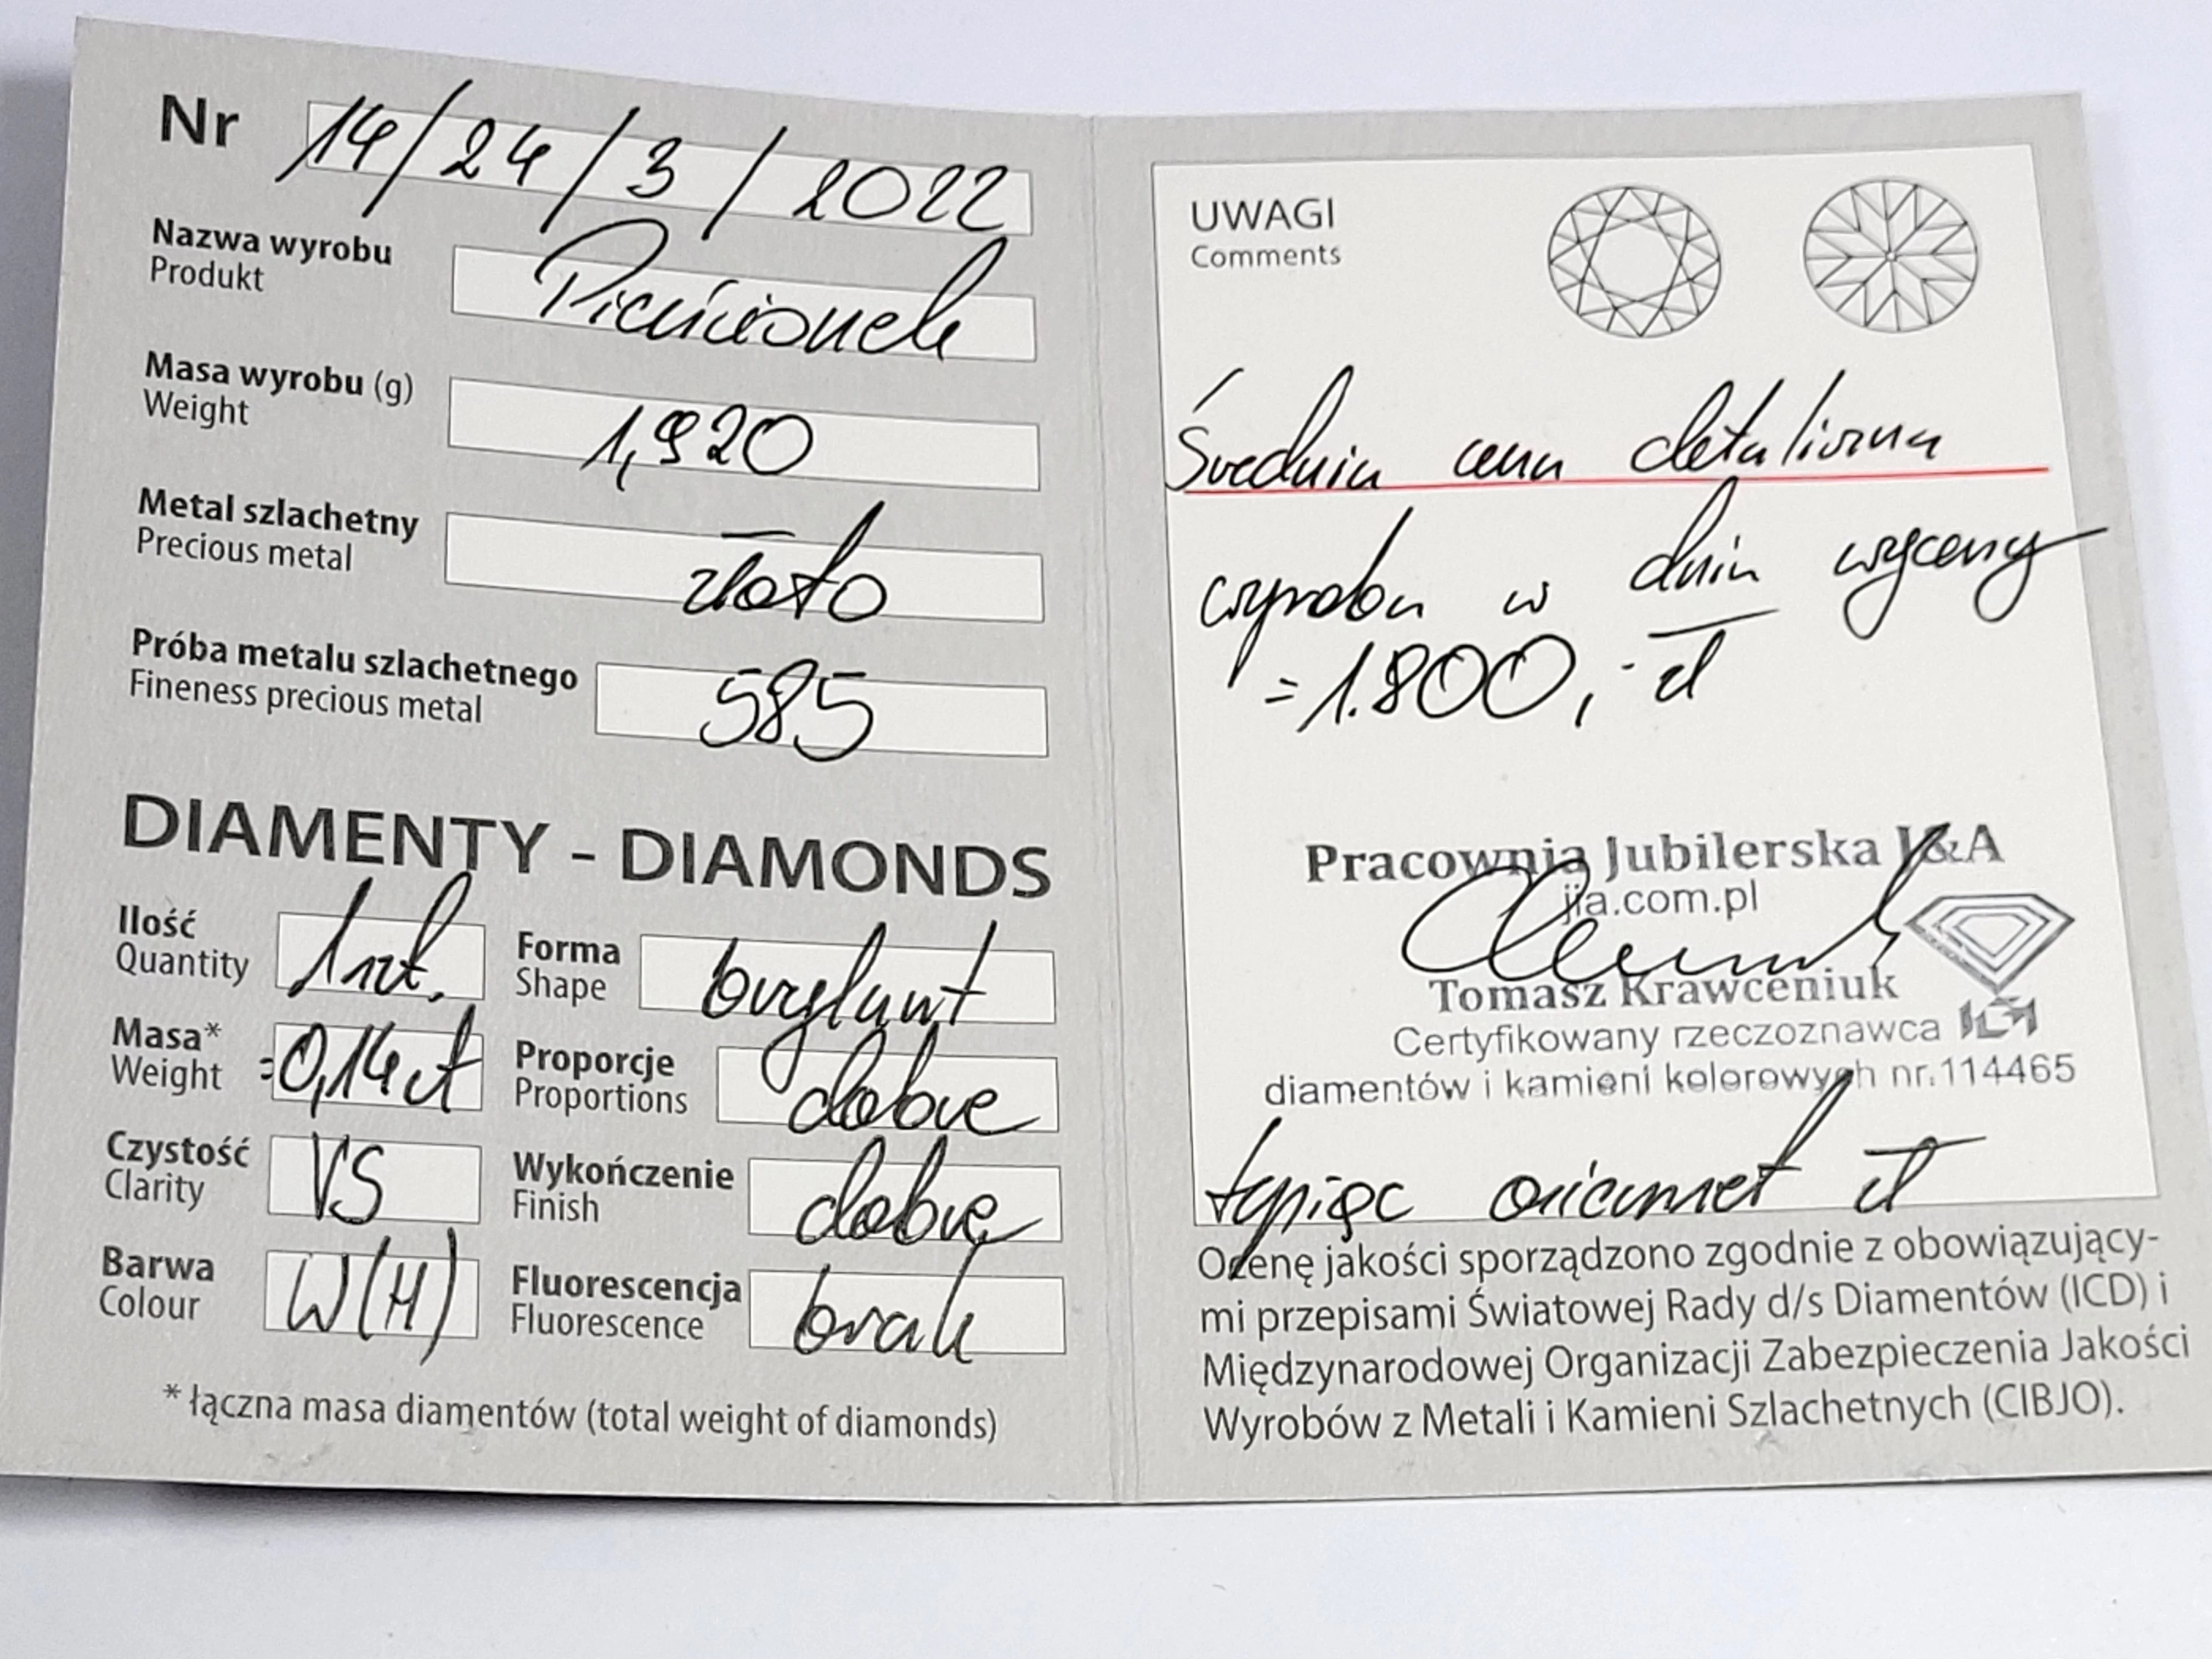 Nr 14/24/3/2022
Nazwa wyrobu
Produkt
Pierścionek
Masa wyrobu (g)
Weight
1,920
Metal szlachetny
Precious metal
złoto
Próba metalu szlachetnego
Fineness precious metal
585
DIAMENTY - DIAMONDS
Ilość
Quantity
1szt.
Forma
Shape
brylant
Masa*
Weight
=0,14ct
Proporcje
Proportions
dobre
Czystość
Clarity
VS
Wykończenie
Finish
dobre
Barwa
Colour
W(H)
Fluorescencja
Fluorescence
brak
* łączna masa diamentów (total weight of diamonds)
UWAGI
Comments
Średnia cena detaliczna
wyrobu w dniu wyceny
=1.800,- zł
Pracownia Jubilerska J&A
jia.com.pl
Tomasz Krawceniuk
Certyfikowany rzeczoznawca
diamentów i kamieni kolorowych nr.114465
tysiąc osiemset zł
Ocenę jakości sporządzono zgodnie z obowiązujący-
mi przepisami Światowej Rady d/s Diamentów (ICD) i
Międzynarodowej Organizacji Zabezpieczenia Jakości
Wyrobów z Metali i Kamieni Szlachetnych (CIBJO).